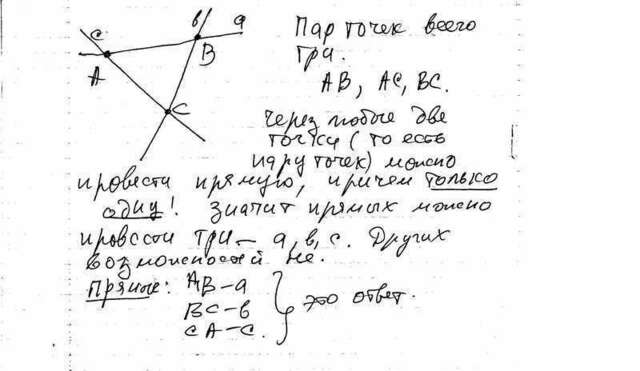 c в а
А В
С
Пар точек всего
три.
АВ, АС, ВС.
Через любые две
точки (то есть
пару точек) можно
провести прямую, причем только
одну! Значит прямых можно
провести три – а, в, с. Других
возможностей не.
Прямые: АВ – а
ВС – в
СА – с.
это ответ.